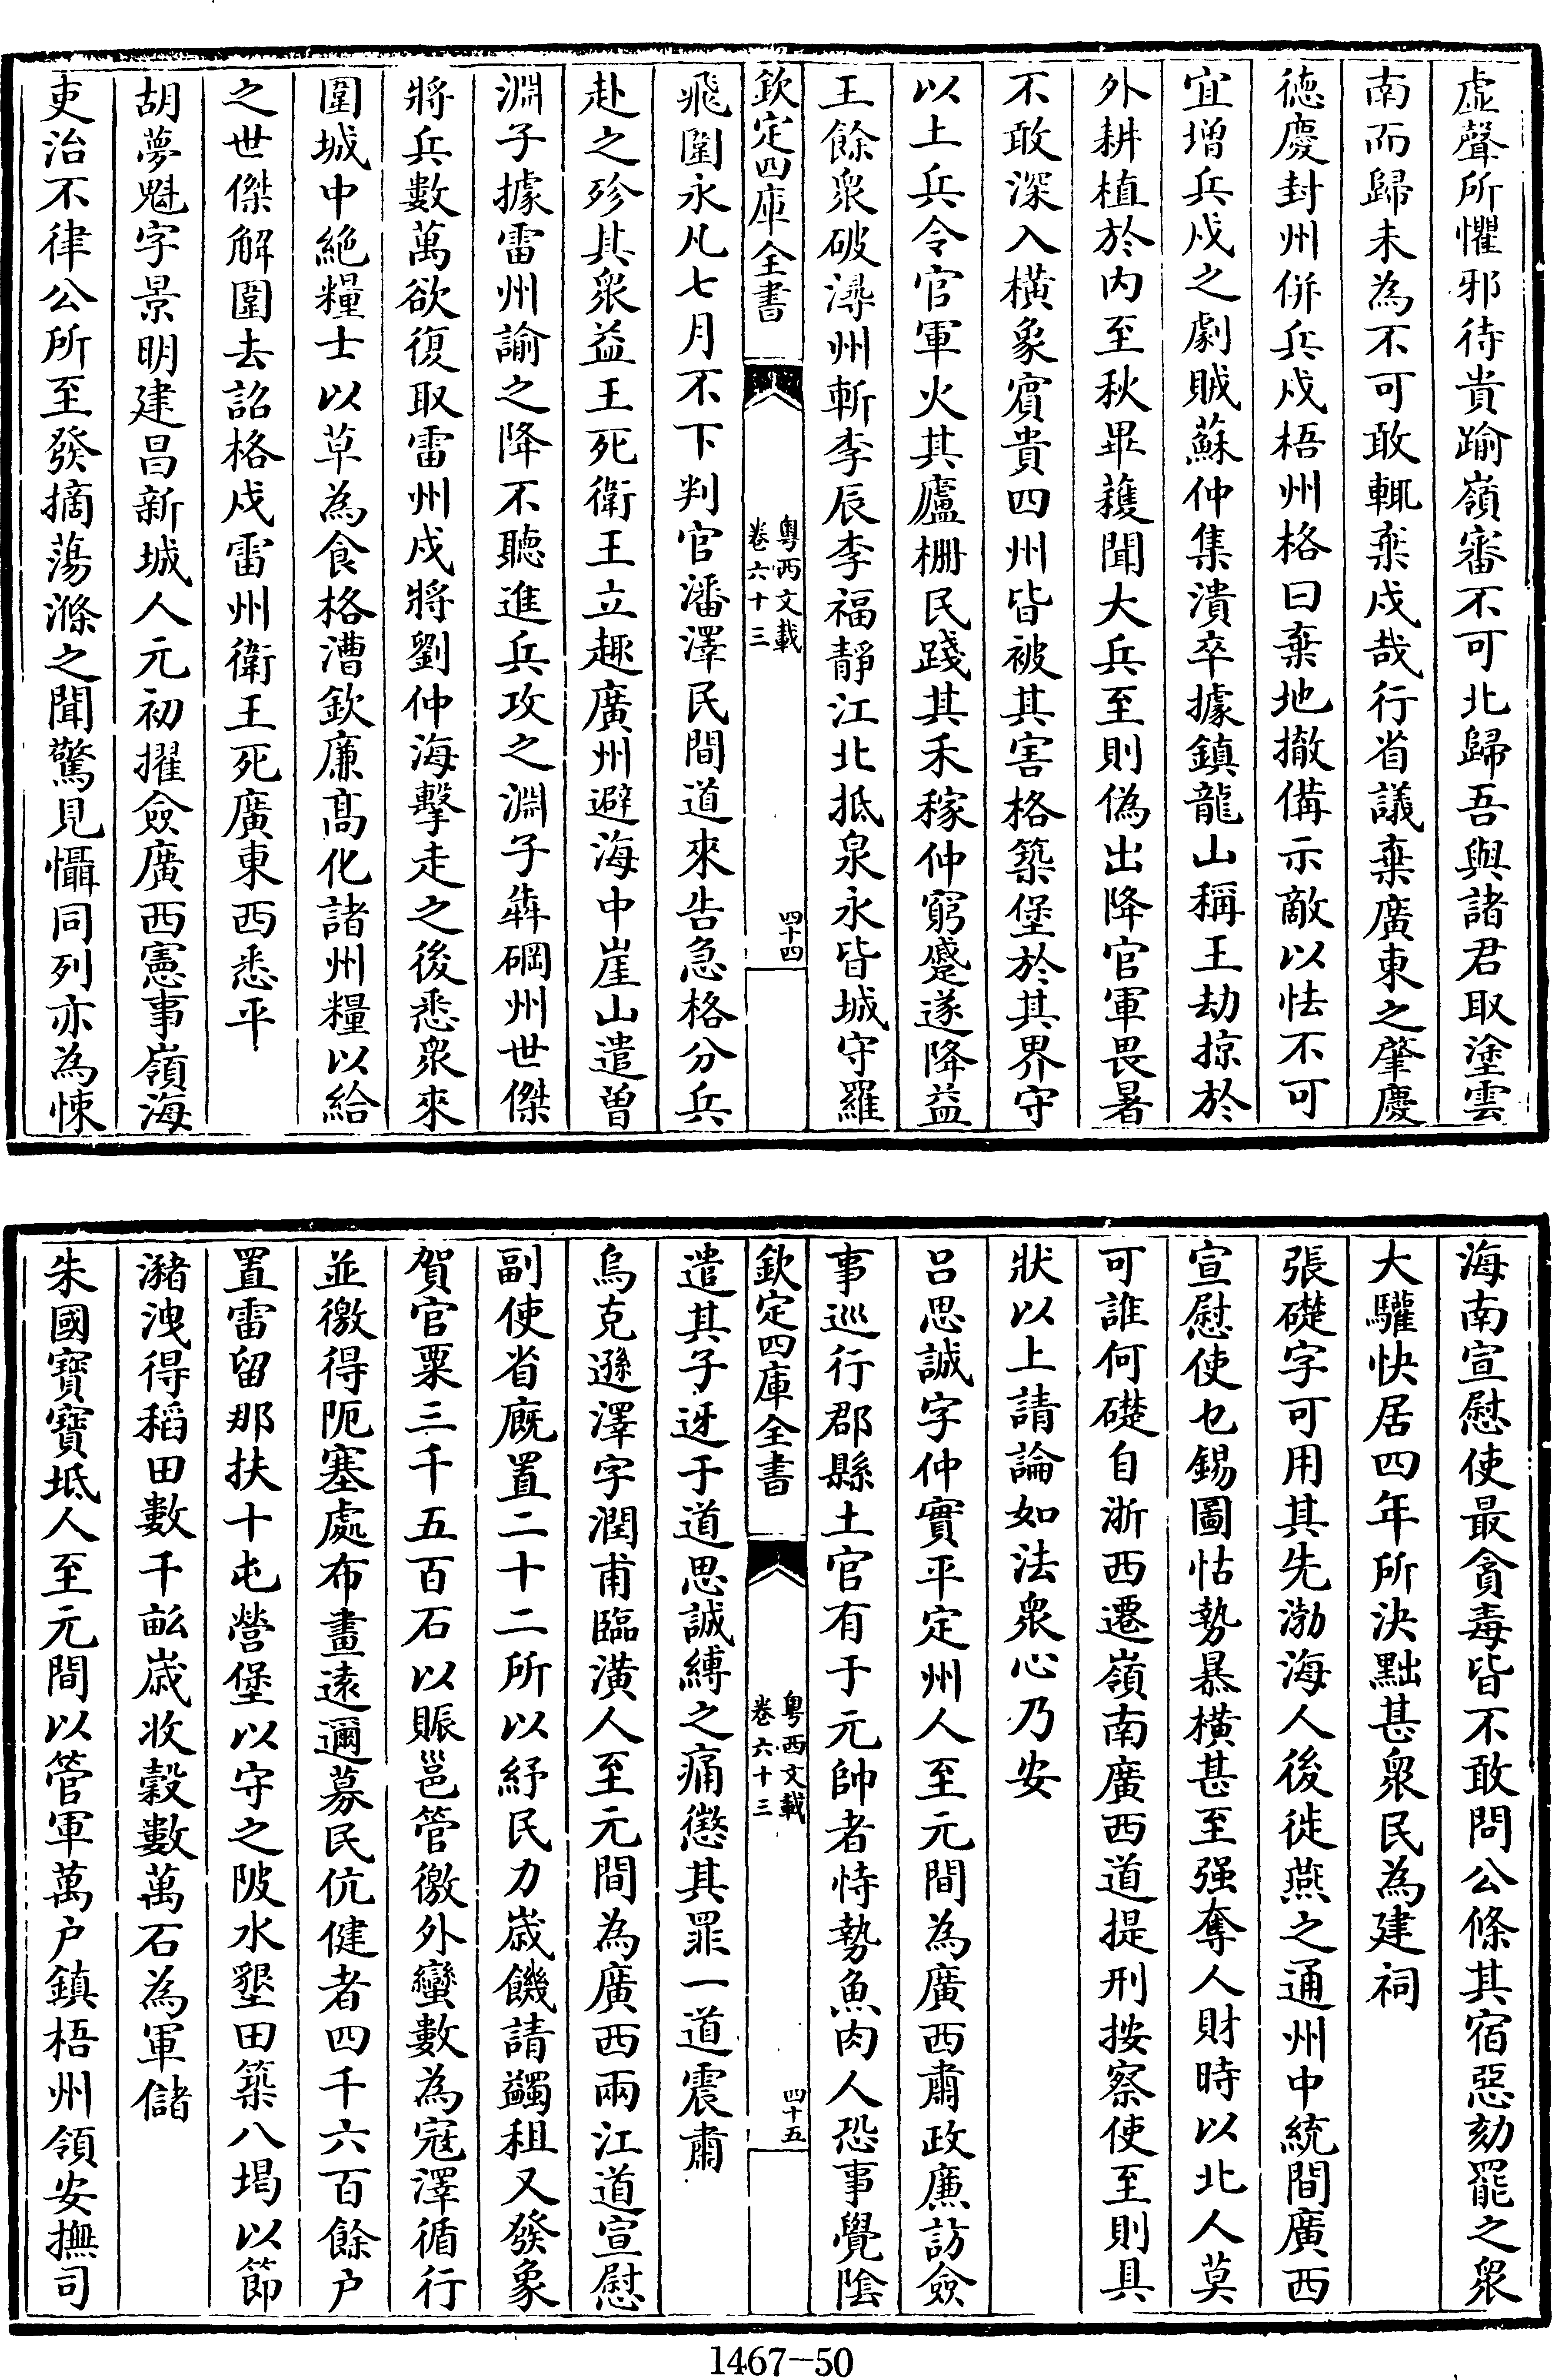 虚聲所懼邪待貴踰嶺審不可北歸吾與諸君取塗雲
南而歸未為不可敢輒棄戍哉行省議棄廣東之肇慶
徳慶封州併兵戍梧州格曰棄地撤備示敵以怯不可
宜增兵戍之劇賊蘇仲集潰卒據鎮龍山稱王劫掠於
外耕植於内至秋畢穫聞大兵至則偽出降官軍畏暑
不敢深入横象賓貴四州皆被其害格築堡於其界守
以土兵令官軍火其廬栅民踐其禾稼仲窮蹙遂降益
王餘衆破潯州斬李辰李福靜江北抵泉永皆城守羅
欽定四庫全書
粤西文載
卷六十三
四十四
飛圍永凡七月不下判官潘澤民間道來告急格分兵
赴之殄其衆益王死衛王立趣廣州避海中崖山遣曾
淵子據雷州諭之降不聽進兵攻之淵子犇碙州世傑
將兵數萬欲復取雷州戍將劉仲海擊走之後悉衆來
圍城中絶糧士以草為食格漕欽廉髙化諸州糧以給
之世傑解圍去詔格戍雷州衛王死廣東西悉平
胡夢魁字景明建昌新城人元初擢僉廣西憲事嶺海
吏治不律公所至發摘蕩滌之聞驚見懾同列亦為悚
海南宣慰使最貪毒皆不敢問公條其宿惡劾罷之衆
大驩快居四年所決黜甚衆民為建祠
張礎字可用其先渤海人後徙燕之通州中統間廣西
宣慰使乜錫圖怙勢暴横甚至强奪人財時以北人莫
可誰何礎自浙西遷嶺南廣西道提刑按察使至則具
狀以上請論如法衆心乃安
吕思誠字仲實平定州人至元間為廣西肅政廉訪僉
事巡行郡縣土官有于元帥者恃勢魚肉人恐事覺隂
欽定四庫全書
粤西文載
卷六十三
四十五
遣其子迓于道思誠縛之痛懲其罪一道震肅
烏克遜澤字潤甫臨潢人至元間為廣西兩江道宣慰
副使省廐置二十二所以紓民力嵗饑請蠲租又發象
賀官粟三千五百石以賑邕管徼外蠻數為寇澤循行
並徼得阨塞處布畫逺邇募民伉健者四千六百餘户
置雷留那扶十屯營堡以守之陂水墾田築八堨以節
瀦洩得稻田數千畝嵗收穀數萬石為軍儲
朱國寶寶坻人至元間以管軍萬户鎮梧州領安撫司
1467-50